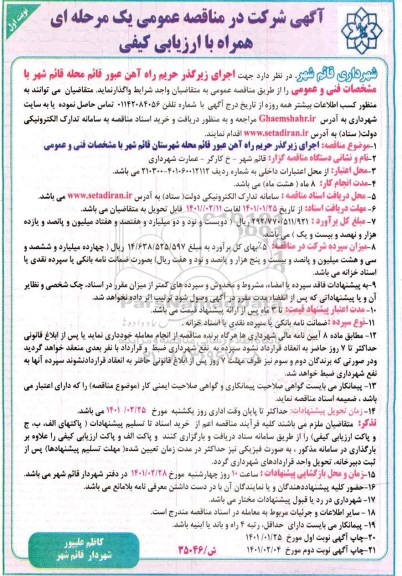 نوبت اول
آگهی شرکت در مناقصه عمومی یک مرحله ای
همراه با ارزیابی کیفی
شهرداری قائم شهر، در نظر دارد جهت اجرای زیرگذر حریم راه آهن عبور قائم محله قائم شهر با
مشخصات فنی و عمومی را از طریق مناقصه عمومی به متقاضیان واجد شرایط واگذارنماید. متقاضیان می توانند به
منظور کسب اطلاعات بیشتر همه روزه از تاریخ درج آگهی با شماره تلفن ۰۱۱۴۲۰۸۴۰۵۶ تماس حاصل نموده یا به سایت
شهرداری به آدرس Ghaemshahr.ir مراجعه و به منظور دریافت و خرید اسناد مناقصه به سامانه تدارک الکترونیکی
دولت( ستاد) به آدرس www.setadiran.ir اقدام نمایند.
۱-موضوع مناقصه: اجرای زیرگذر حریم راه آهن عبور قائم محله شهرستان قائم شهر با مشخصات فنی و عمومی
۲-نام و نشانی دستگاه مناقصه گزار: قائم شهر - خ کارگر - عمارت شهرداری
۳-محل اعتبار: از محل اعتبارات داخلی به شماره ردیف
۴-مدت انجام کار: ۸ ماه ( هشت ماه) می باشد.
۵- محل دریافت اسناد مناقصه : سامانه تدارک الکترونیکی دولت( ستاد) به آدرس www.setadiran.ir می باشد.
۶- مهلت دریافت اسناد: از تاریخ ۱۴۰۱/۰۱/۲۵ لغایت ۱۴۰۱/۰۲/۱۱ قابل تحویل به متقاضیان می باشد.
۷-مبلغ کل برآورد : ۲۹۲/۷۷۰/۵۱۱/۹۲۱ ریال ( دویست و نود و دو میلیارد و هفتصد و هفتاد میلیون و پانصد و یازده
هزار و نهصد و بیست و یک ) می باشد.
۸-میزان سپرده شرکت در مناقصه: ۵٪بهای کل برآورد به مبلغ ۱۴/۶۳۸/۵۲۵/۵۹۷ ریال ( چهارده میلیارد و ششصد و
سی و هشت میلیون و پانصد و بیست و پنج هزار و پانصد و نود و هفت ریال) بصورت ضمانت نامه بانکی یا سپرده نقدی یا
اسناد خزانه می باشد.
۹-به پیشنهادات فاقد سپرده یا امضاء، مشروط و مخدوش و سپرده های کمتر از میزان مقرر در اسناد، چک شخصی و نظایر
آن و یا پیشنهاداتی که پس از انقضاء مدت مقرر در آگهی وصول شود ترتیب اثر داده نخواهد شد.
۱۰-مدت اعتبار پیشنهاد قیمت: تا ۳ ماه پس از ارائه پیشنهاد قیمت می باشد.
۱۱-نوع سپرده :ضمانت نامه بانکی یا سپرده نقدی یا اسناد خزانه .
۱۲- مطابق ماده ۸ آیین نامه مالی شهرداری ها هرگاه برنده مناقصه از انجام معامله خودداری نماید یا پس از ابلاغ قانونی
حداکثر تا ۷ روز حاضر به انعقاد قرارداد نشود سپرده به نفع شهرداری ضبط و قرارداد با نفر بعدی منعقد خواهد گردید
ودر صورتی که برندگان دوم و سوم نیز ظرف مهلت ۷ روز پس از ابلاغ قانونی حاضر به انعقاد قراردادنشوند سپرده آنها به
نفع شهرداری ضبط خواهد شد.
۱۳- پیمانکار می بایست گواهی صلاحیت پیمانکاری و گواهی صلاحیت ایمنی کار (موضوع مناقصه) را که دارای اعتبار می
باشد ، ضمیمه اسناد مناقصه نماید.
۱۴-زمان تحویل پیشنهادات: حداکثر تا پایان وقت اداری روز یکشنبه مورخ ۱۴۰۱/۰۲/۲۵ می باشد.
تذکر: متقاضیان ملزم می باشند کلیه فرآیند مناقصه اعم از خرید اسناد تا تسلیم پیشنهادات ( پاکتهای الف، ب، ج
و پاکت ارزیابی کیفی) را از طریق سامانه ستاد دریافت و بارگزاری کنند و پاکت الف و پاکت ارزیابی کیفی را علاوه بر
بارگذاری در سامانه مذکور ، به صورت فیزیکی نیز حداکثر در مدت زمان تعیین شده( مهلت تسلیم پیشنهادها) پس از
ثبت دبیرخانه، تحویل واحد قراردادهای شهرداری گردد.
۱۵-زمان و محل بازگشایی پیشنهادات : ساعت ۱۰ روز چهارشنبه مورخ ۱۴۰۱/۰۲/۲۸ در دفتر شهردار قائم شهر می باشد.
۱۶-حضور کلیه پیشنهاددهندگان و یا نمایندگان آن با در دست داشتن معرفی نامه بلامانع می باشد.
۱۷-شهرداری در رد یا قبول پیشنهادات مختار می باشد.
۱۸- سایر اطلاعات و جزئیات مربوط به معامله در اسناد مناقصه مندرج است.
۱۹- پیمانکار می بایست دارای حداقل، رتبه ۴ راه و باند یا ابنیه باشد.
۲۰-چاپ آگهی نوبت اول مورخ ۱۴۰۱/۰۱/۲۵
۲۱-چاپ آگهی نوبت دوم مورخ ۱۴۰۱/۰۲/۰۴
ش/۳۵۰۴۶
کاظم علیپور
شهردار قائم شهر